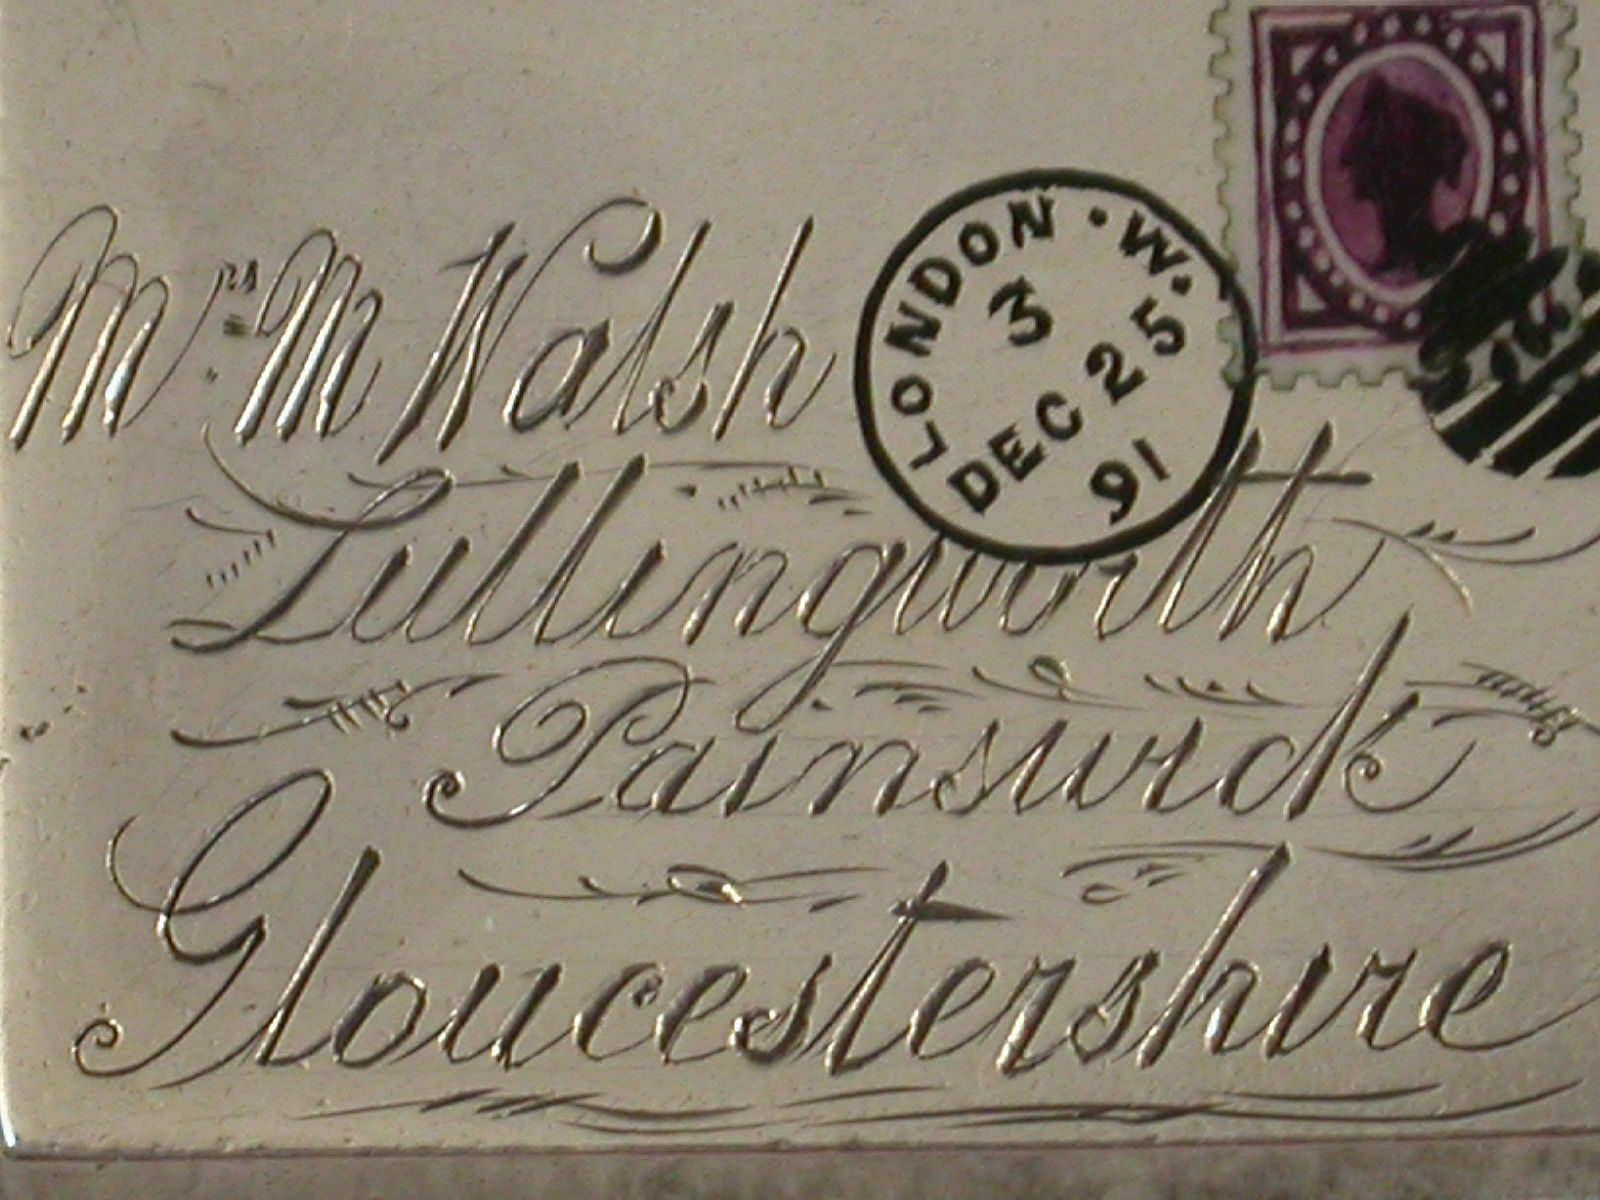 Mrs. M Walsh
Lullingworth
Painswick
Gloucestershire
LONDON · W.
3
DEC 25
91